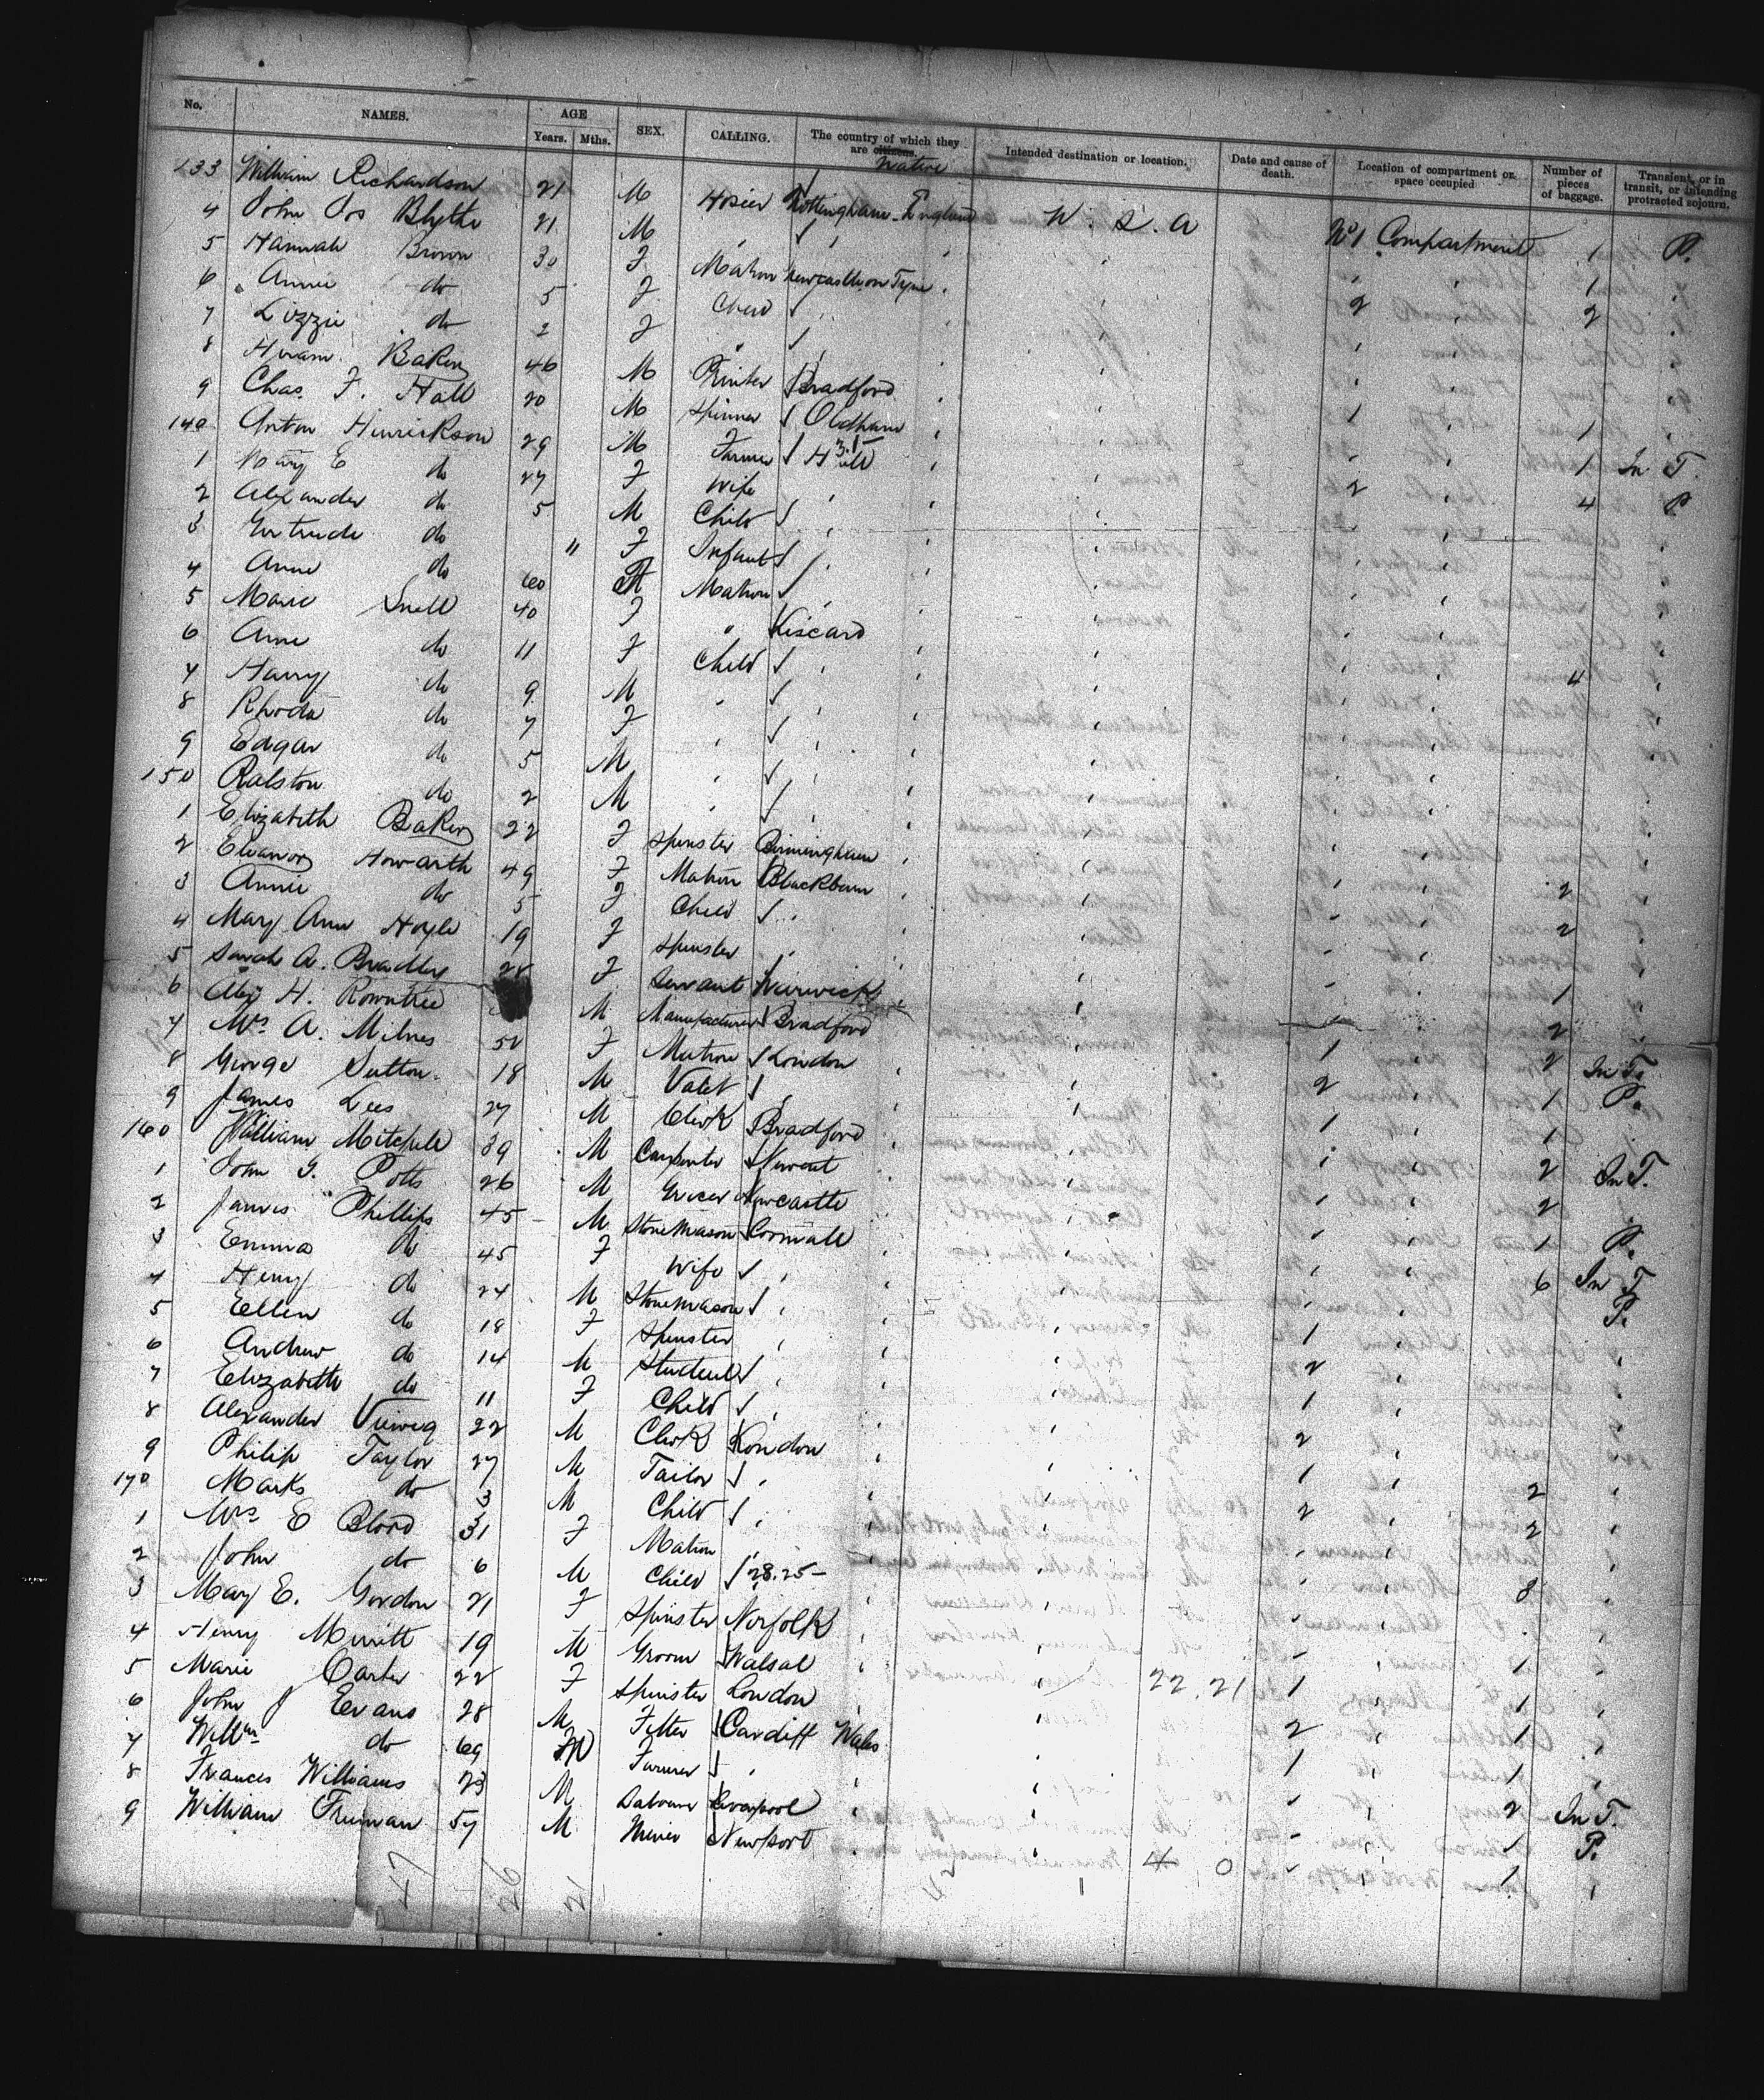 No. NAMES. AGE Years. Mths. SEX. CALLING. The country of which they are citizens. Native Intended destination or location. Date and cause of death. Location of compartment or space occupied Number of pieces of baggage. Transient, or in transit, or intending protracted sojourn.
133 William Richardson 21 M Hosier Nottingham - England U. S. A No 1 Compartment 1 P.
4 John Jos Blythe 21 M 1
5 Hannah Brown 30 F Matron Newcastle on Tyne 2 2
6 Annie do 5 F Child
7 Lizzie do 2 F "
8 Hiram Baker 46 M Printer Bradford 1 1
9 Chas. F. Hall 20 M Spinner Oldham 1 In T.
140 Anton Hinrickson 29 M Farmer Hull 2 4 P
1 Mary E do 27 F Wife
2 Alexander do 5 M Child
3 Gertrude do " F Infant
4 Anne do 60 F Matron
5 Marie Snell 40 F " Liscard 4
6 Anne do 11 F Child
7 Harry do 9 M
8 Rhoda do 7 F
9 Edgar do 5 M
150 Ralston do 2 M
1 Elizabeth Baker 22 F Spinster Birmingham 2
2 Eleanor Howarth 49 F Matron Blackburn 2
3 Annie do 5 F Child
4 Mary Ann Hoyle 19 F Spinster 1
5 Sarah A. Bradley 28 F Servant Warwick 2
6 Alex H. Rowntree M Manufacturer Bradford 1 2 In T.
7 Mrs A. Milnes 52 F Matron London 2 1 P.
8 George Sutton 18 M Valet 1 1
9 James Lees 27 M Clerk Bradford 2 In T.
160 William Mitchell 39 M Carpenter Newent 2
1 John G. Potts 26 M Grocer Newcastle 1 P.
2 James Phillips 45 M Stonemason Cornwall 6 In T.
3 Emma do 45 F Wife P.
4 Henry do 24 M Stonemason 1
5 Ellen do 18 F Spinster 2
6 Andrew do 14 M Student 1
7 Elizabeth do 11 F Child 2
8 Alexander Vieweg 22 M Clerk London 1 2
9 Philip Taylor 27 M Tailor 2 2
170 Marks do 3 M Child
1 Mrs E Blood 31 F Matron 8
2 John do 6 M Child 28.25-
3 Mary E. Gordon 21 F Spinster Norfolk 1
4 Henry Merritt 19 M Groom Walsal 22.21 1 1
5 Marie Carter 22 F Spinster London 2 1
6 John J Evans 28 M Fitter Cardiff Wales 1 1
7 Willm do 69 M Farmer 2 In T.
8 Frances Williams 23 M Labourer Liverpool 1 P.
9 William Freeman 57 M Miner Newport 4 0 1
47 26 21